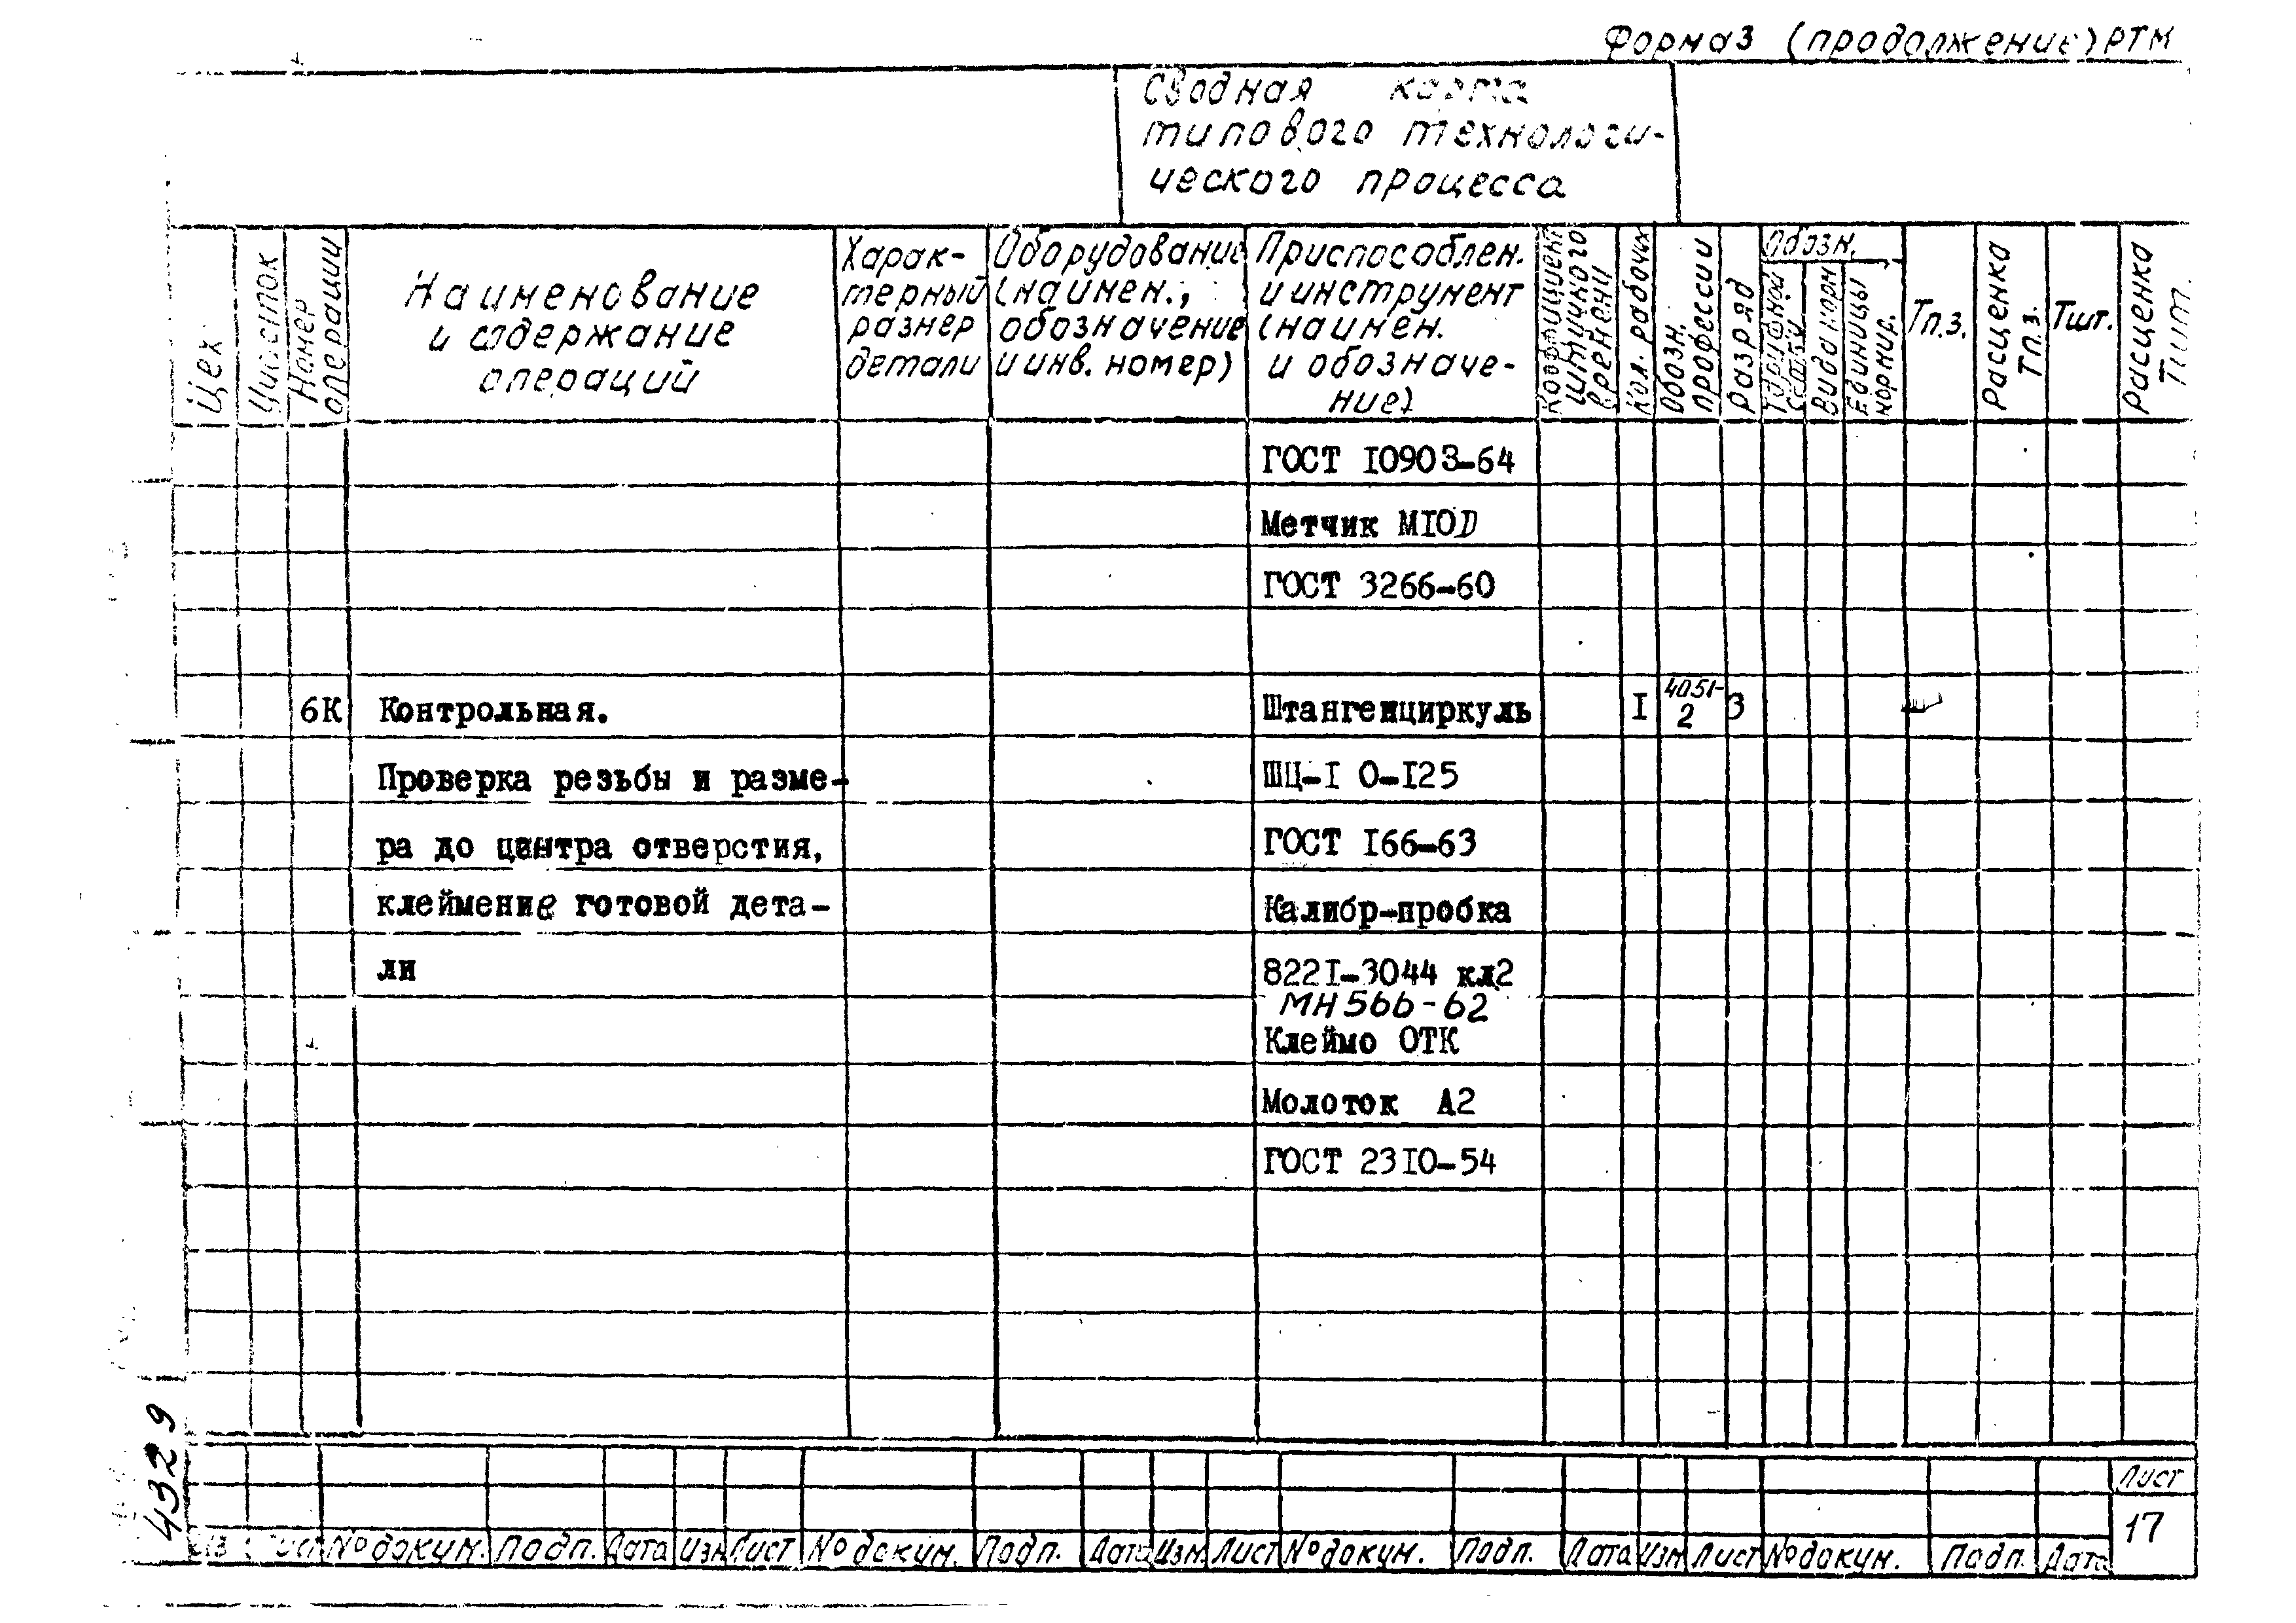 Форма 3 (продолжение) РТМ
Сводная карта
типового технологи-
ческого процесса
Цех
Участок
Номер
операции
Наименование
и содержание
операций
Харак-
терный
размер
детали
Оборудование
(наимен.,
обозначение
и инв. номер)
Приспособлен.
и инструмент
(наимен.
и обозначе-
ние)
Коэффициент
штучного
времени
Кол. рабочих
Обозн.
профессии
Разряд
Обозн.
Тарифной
сетки
Вида норм
Единицы
нормир.
Тп.з.
Расценка
Тп.з.
Тшт.
Расценка
Тшт.
ГОСТ I0903-64
Метчик МI0D
ГОСТ 3266-60
6К Контрольная. Штангенциркуль I 4051- 3
2
Проверка резьбы и разме- ШЦ-I 0-I25
ра до центра отверстия, ГОСТ I66-63
клеймение готовой дета- Калибр-пробка
ли 822I-3044 кл2
МН 566-62
Клеймо ОТК
Молоток А2
ГОСТ 23I0-54
4329
Лист
17
Из Лист № докум. Подп. Дата Изм Лист № докум. Подп. Дата Изм. Лист № докум. Подп. Дата Изм Лист № докум. Подп. Дата